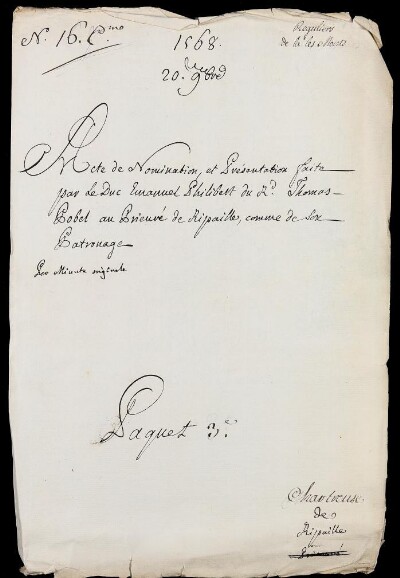 N. 16. C.mo
1568.
20. 9bre
Reguliers
de là les Monts
Acte de Nomination, et Présentation faite
par Le Duc Emanuel Philibert du Rd. Thomas
Pobel au Prieuré de Ripaille, comme de son
Patronage
Par Minute originale
Paquet 3.e
Chartreuse
de
Ripaille